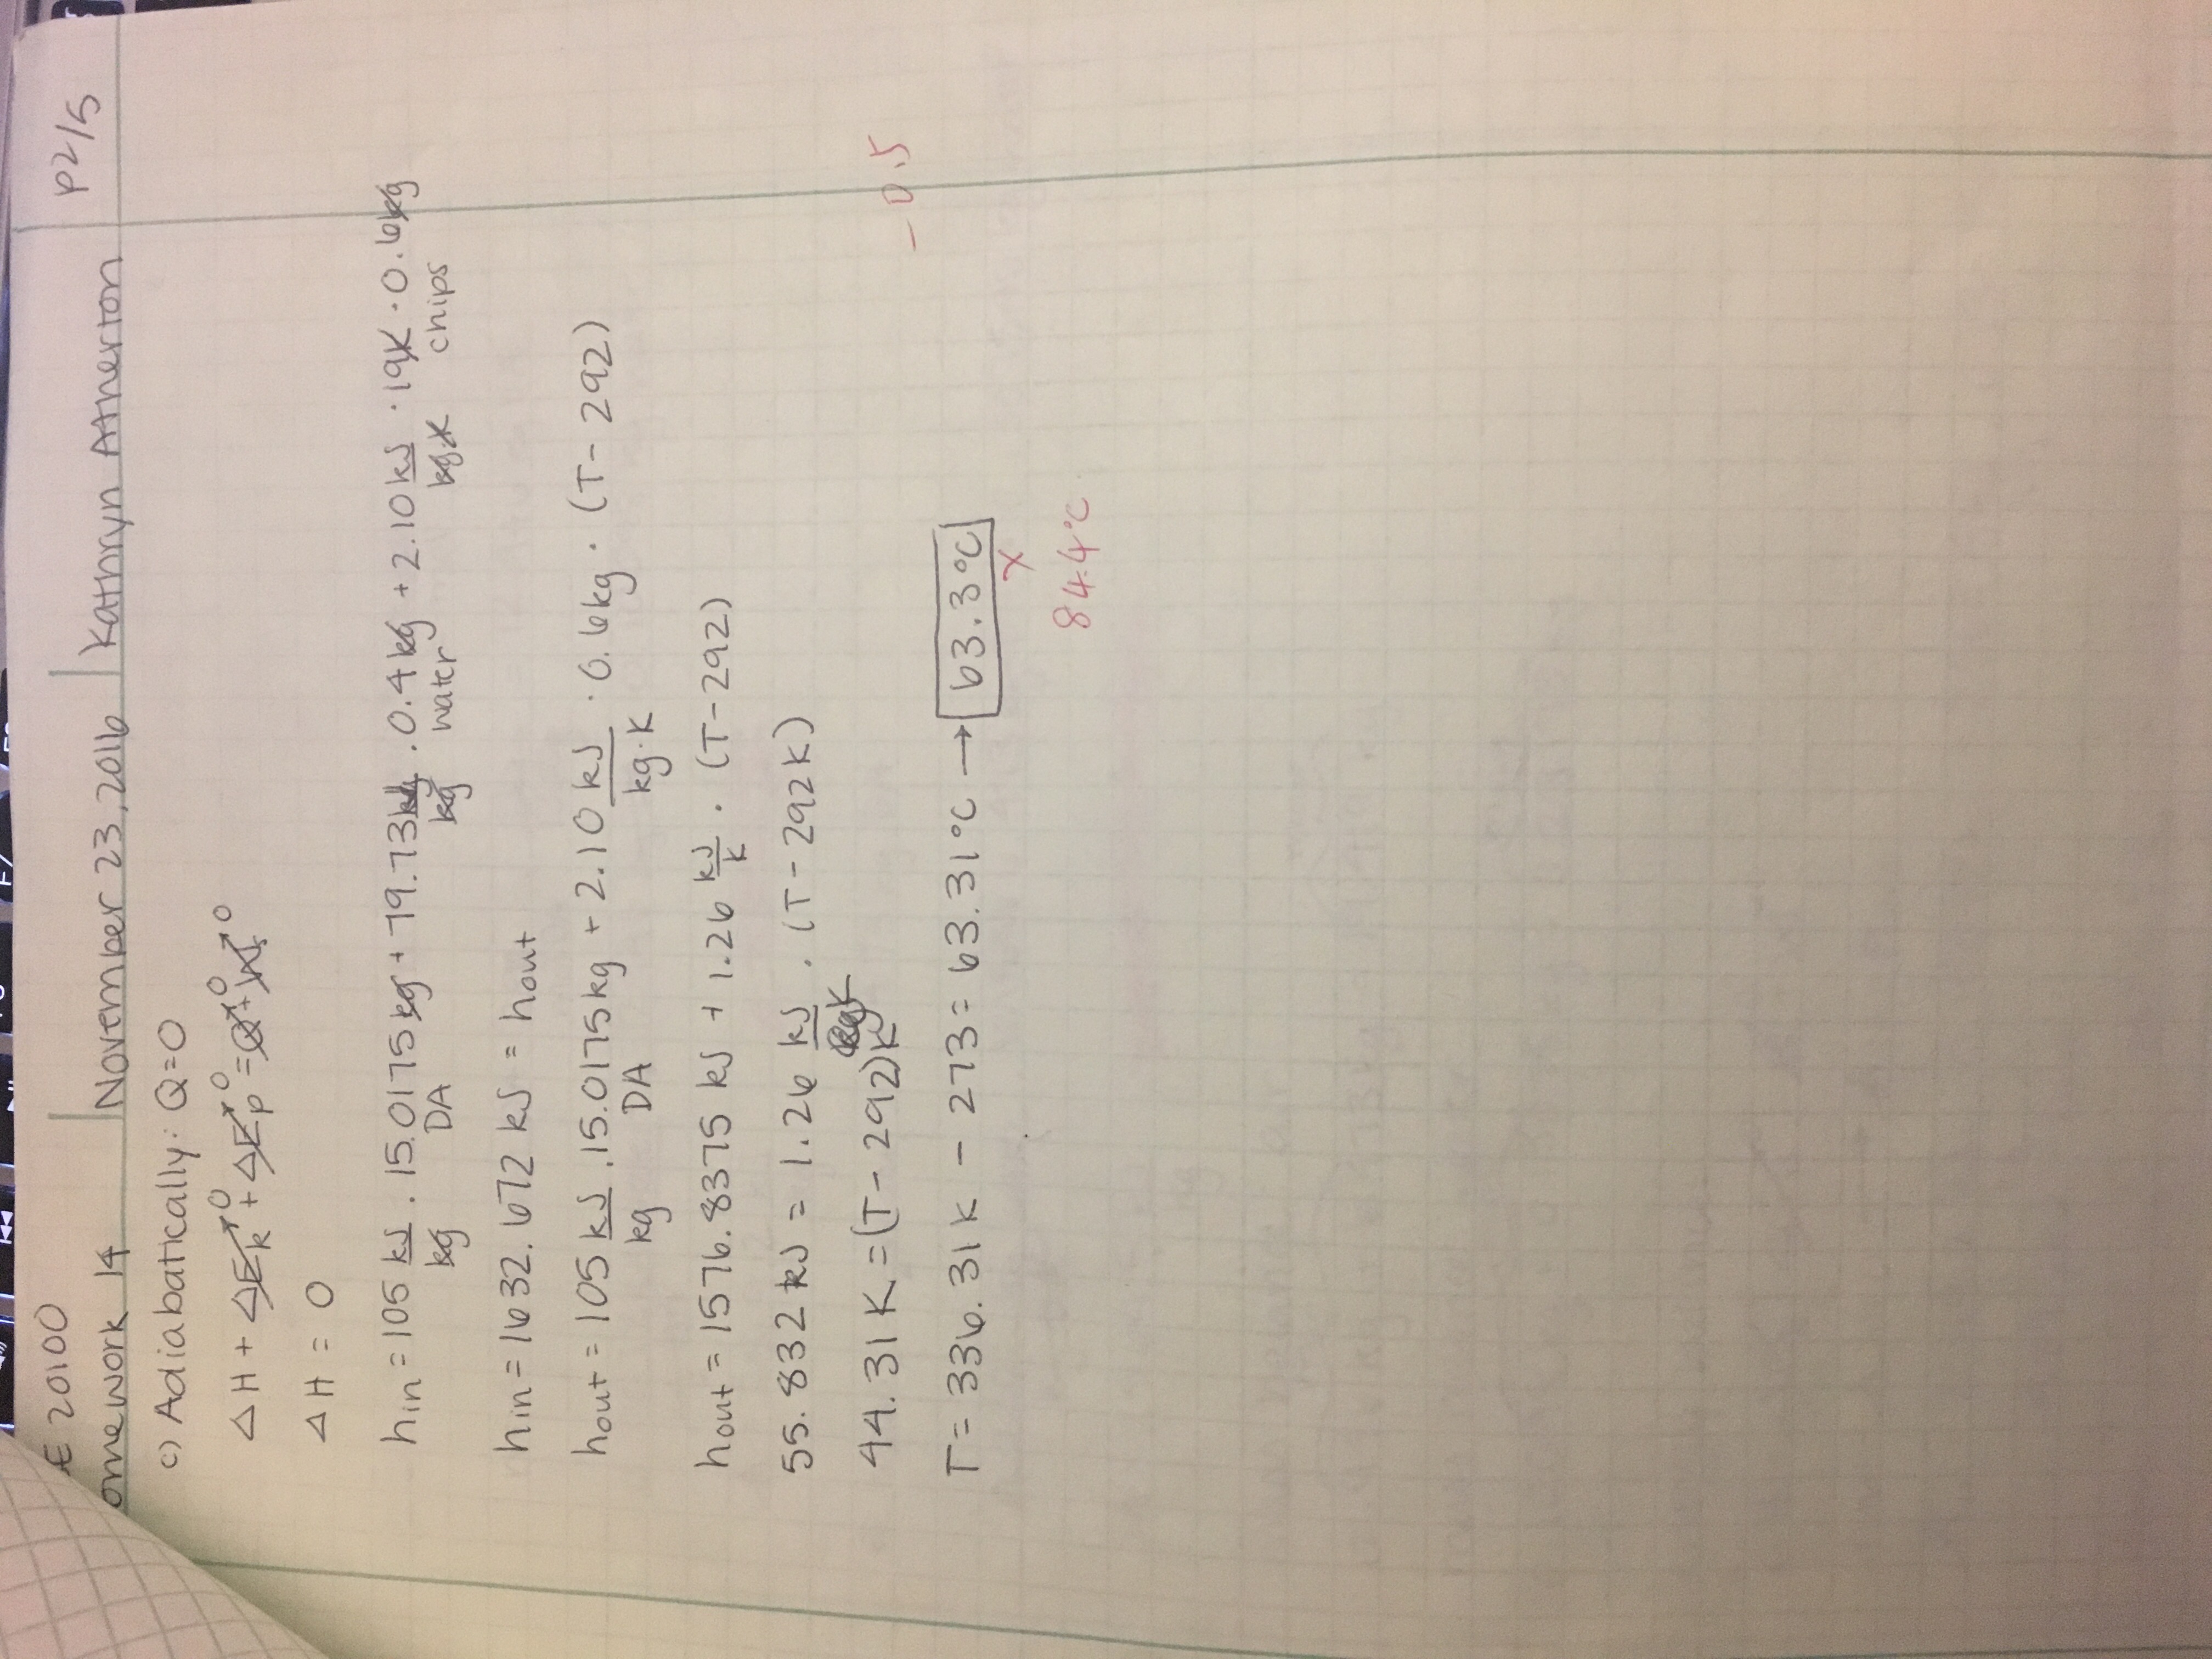 E 20100
omework 14 | November 23, 2016 | Kathryn Atherton
p2/5
c) Adiabatically: Q=0
ΔH + ΔE_k→0 + ΔE_p→0 = Q→0 + W_s→0
ΔH = 0
h_in = 105 kJ/kg · 15.0175 kg DA + 79.73 kJ/kg · 0.4 kg water + 2.10 kJ/kg·K · 19K · 0.6 kg chips
h_in = 1632.672 kJ = h_out
h_out = 105 kJ/kg · 15.0175 kg DA + 2.10 kJ/kg·K · 0.6 kg · (T - 292)
h_out = 1576.8375 kJ + 1.26 kJ/K · (T-292)
55.832 kJ = 1.26 kJ/K · (T - 292K)
44.31 K = (T - 292)K
-0.5
T = 336.31 K - 273 = 63.31°C → 63.3°C
x
84.4°C